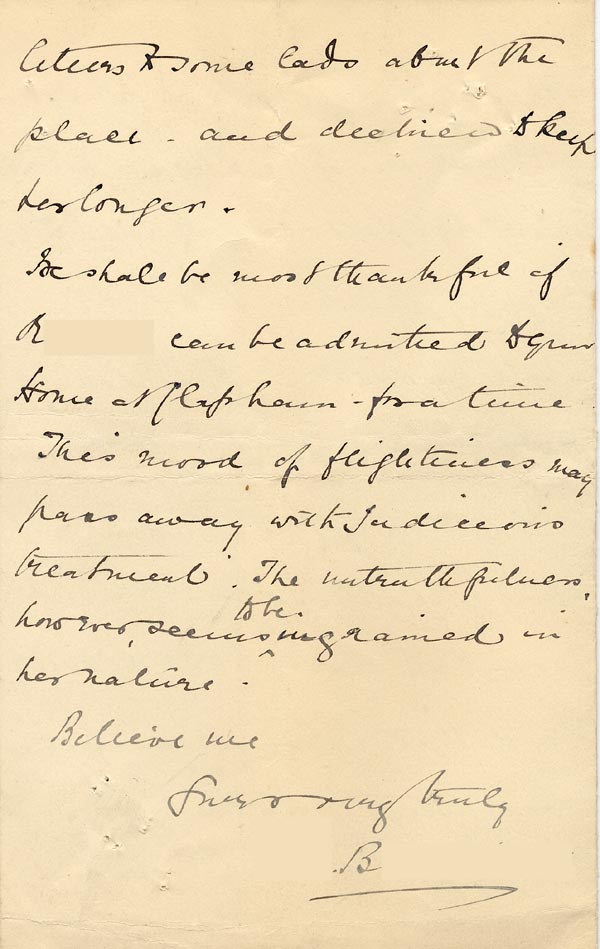 letters to some lads about the
place - and declined to keep
her longer.
We shall be most thankful if
R can be admitted to your
Home at Clapham - for a time
This mood of flightiness may
pass away with Judicious
treatment. The untruthfulness,
however, seems to be ingrained in
her nature.
Believe me
Yours very truly
B